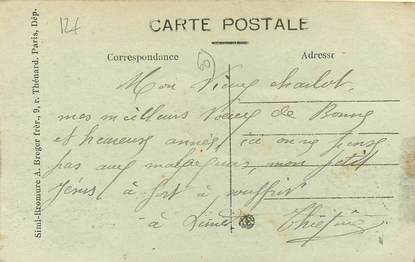 124
CARTE POSTALE
Correspondance
Adresse
Simi-Bromure A. Breger frèr., 9, r. Thénard. Paris, Dép.
Mon Vieux charlot,
mes meilleurs voeux de Bonne
et heureuse année, ici on ne pense
pas aux , mon petit
Jésus à fort à souffrir
à